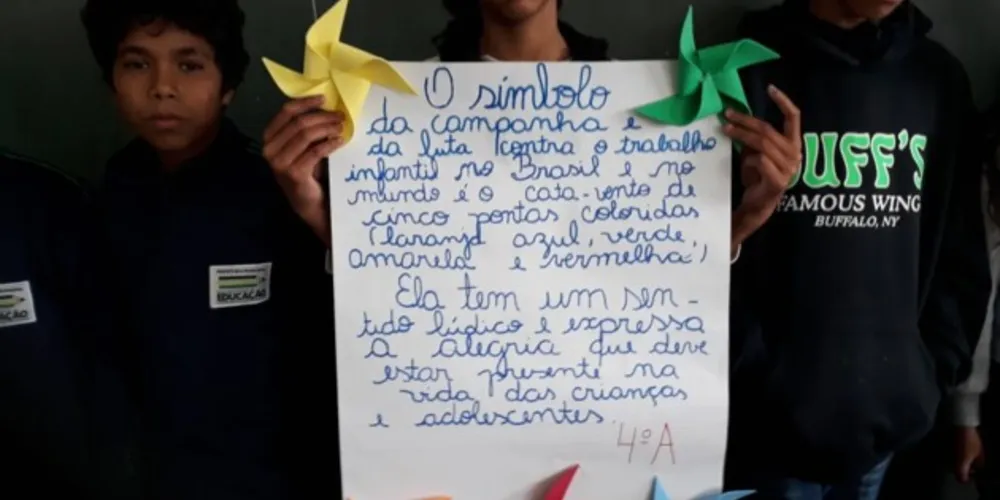 O símbolo
da campanha e
da luta contra o trabalho
infantil no Brasil e no
mundo é o cata-vento de
cinco pontas coloridas
(laranja azul, verde,
amarela e vermelha)
Ela tem um sen-
tido lúdico e expressa
a alegria que deve
estar presente na
vida das crianças
e adolescentes.
4º A
EDUCAÇÃO
AÇÃO
DUFF'S
FAMOUS WING
BUFFALO, NY